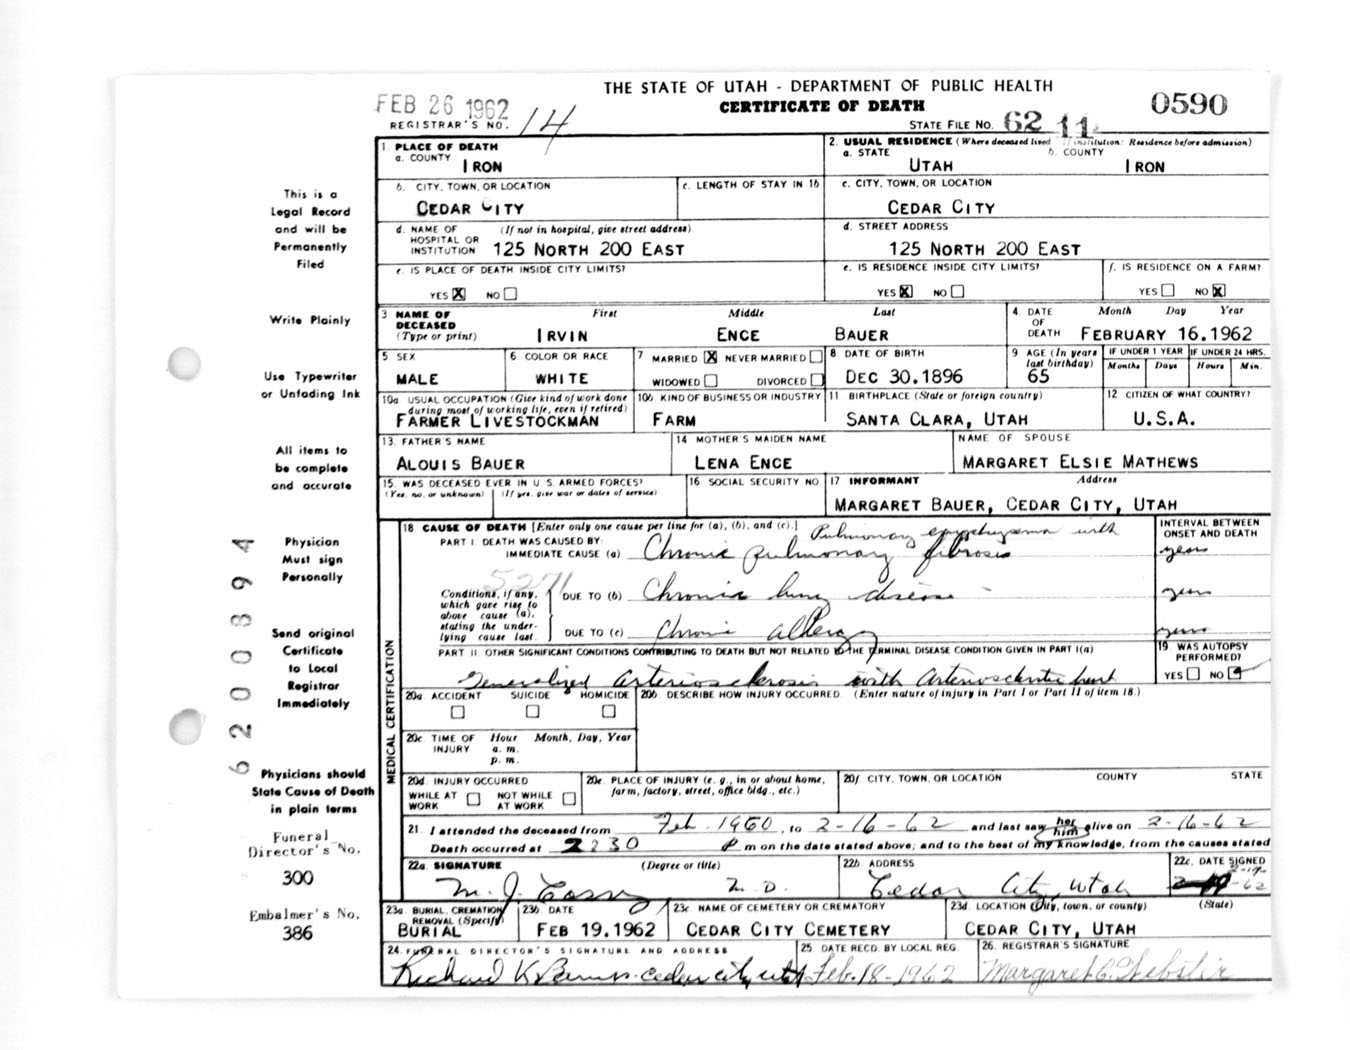 THE STATE OF UTAH - DEPARTMENT OF PUBLIC HEALTH
FEB 26 1962
CERTIFICATE OF DEATH
0590
REGISTRAR'S NO. 14
STATE FILE NO. 62 11
1. PLACE OF DEATH
a. COUNTY
IRON
2. USUAL RESIDENCE (Where deceased lived If institution: Residence before admission)
a. STATE b. COUNTY
UTAH IRON
b. CITY, TOWN, OR LOCATION c. LENGTH OF STAY IN 1b
CEDAR CITY
c. CITY, TOWN, OR LOCATION
CEDAR CITY
d. NAME OF HOSPITAL OR INSTITUTION (If not in hospital, give street address)
125 NORTH 200 EAST
d. STREET ADDRESS
125 NORTH 200 EAST
e. IS PLACE OF DEATH INSIDE CITY LIMITS?
YES X NO
e. IS RESIDENCE INSIDE CITY LIMITS?
YES X NO
f. IS RESIDENCE ON A FARM?
YES NO X
3 NAME OF DECEASED (Type or print)
First Middle Last
IRVIN ENCE BAUER
4. DATE OF DEATH Month Day Year
FEBRUARY 16.1962
5 SEX
MALE
6 COLOR OR RACE
WHITE
7 MARRIED X NEVER MARRIED
WIDOWED DIVORCED
8 DATE OF BIRTH
DEC 30.1896
9 AGE (In years last birthday)
65
IF UNDER 1 YEAR IF UNDER 24 HRS.
Months Days Hours Min.
10a USUAL OCCUPATION (Give kind of work done during most of working life, even if retired)
FARMER LIVESTOCKMAN
10b KIND OF BUSINESS OR INDUSTRY
FARM
11 BIRTHPLACE (State or foreign country)
SANTA CLARA, UTAH
12 CITIZEN OF WHAT COUNTRY?
U.S.A.
13. FATHER'S NAME
ALOUIS BAUER
14 MOTHER'S MAIDEN NAME
LENA ENCE
NAME OF SPOUSE
MARGARET ELSIE MATHEWS
15. WAS DECEASED EVER IN U. S. ARMED FORCES?
(Yes, no, or unknown) (If yes, give war or dates of service)
16 SOCIAL SECURITY NO
17 INFORMANT Address
MARGARET BAUER, CEDAR CITY, UTAH
MEDICAL CERTIFICATION
18. CAUSE OF DEATH [Enter only one cause per line for (a), (b), and (c).]
INTERVAL BETWEEN ONSET AND DEATH
Pulmonary emphysema with
PART I. DEATH WAS CAUSED BY:
IMMEDIATE CAUSE (a) Chronic pulmonary fibrosis years
5271
Conditions, if any, which gave rise to above cause (a), stating the underlying cause last.
DUE TO (b) Chronic lung disease years
DUE TO (c) Chronic allergy years
PART II. OTHER SIGNIFICANT CONDITIONS CONTRIBUTING TO DEATH BUT NOT RELATED TO THE TERMINAL DISEASE CONDITION GIVEN IN PART I(a)
Generalized arteriosclerosis with arteriosclerotic heart
19. WAS AUTOPSY PERFORMED?
YES NO
20a ACCIDENT SUICIDE HOMICIDE
20b. DESCRIBE HOW INJURY OCCURRED. (Enter nature of injury in Part I or Part II of item 18.)
20c TIME OF INJURY Hour Month, Day, Year
a. m.
p. m.
20d. INJURY OCCURRED
WHILE AT WORK NOT WHILE AT WORK
20e. PLACE OF INJURY (e. g., in or about home, farm, factory, street, office bldg., etc.)
20f. CITY, TOWN, OR LOCATION COUNTY STATE
21. I attended the deceased from Feb. 1960, to 2-16-62 and last saw her him alive on 2-16-62
Death occurred at 2230 P m on the date stated above; and to the best of my knowledge, from the causes stated
22a. SIGNATURE (Degree or title)
M. J. M. D.
22b ADDRESS
Cedar City, Utah
22c. DATE SIGNED
2-17-62
23a. BURIAL, CREMATION REMOVAL (Specify)
BURIAL
23b DATE
FEB 19.1962
23c NAME OF CEMETERY OR CREMATORY
CEDAR CITY CEMETERY
23d LOCATION (City, town, or county) (State)
CEDAR CITY, UTAH
24. FUNERAL DIRECTOR'S SIGNATURE AND ADDRESS
Richard K cedar city utah
25. DATE RECD. BY LOCAL REG.
Feb. 18-1962
26. REGISTRAR'S SIGNATURE
Margaret C. Webster
This is a
Legal Record
and will be
Permanently
Filed
Write Plainly
Use Typewriter
or Unfading Ink
All items to
be complete
and accurate
Physician
Must sign
Personally
Send original
Certificate
to Local
Registrar
Immediately
Physicians should
State Cause of Death
in plain terms
Funeral
Director's No.
300
Embalmer's No.
386
62020894